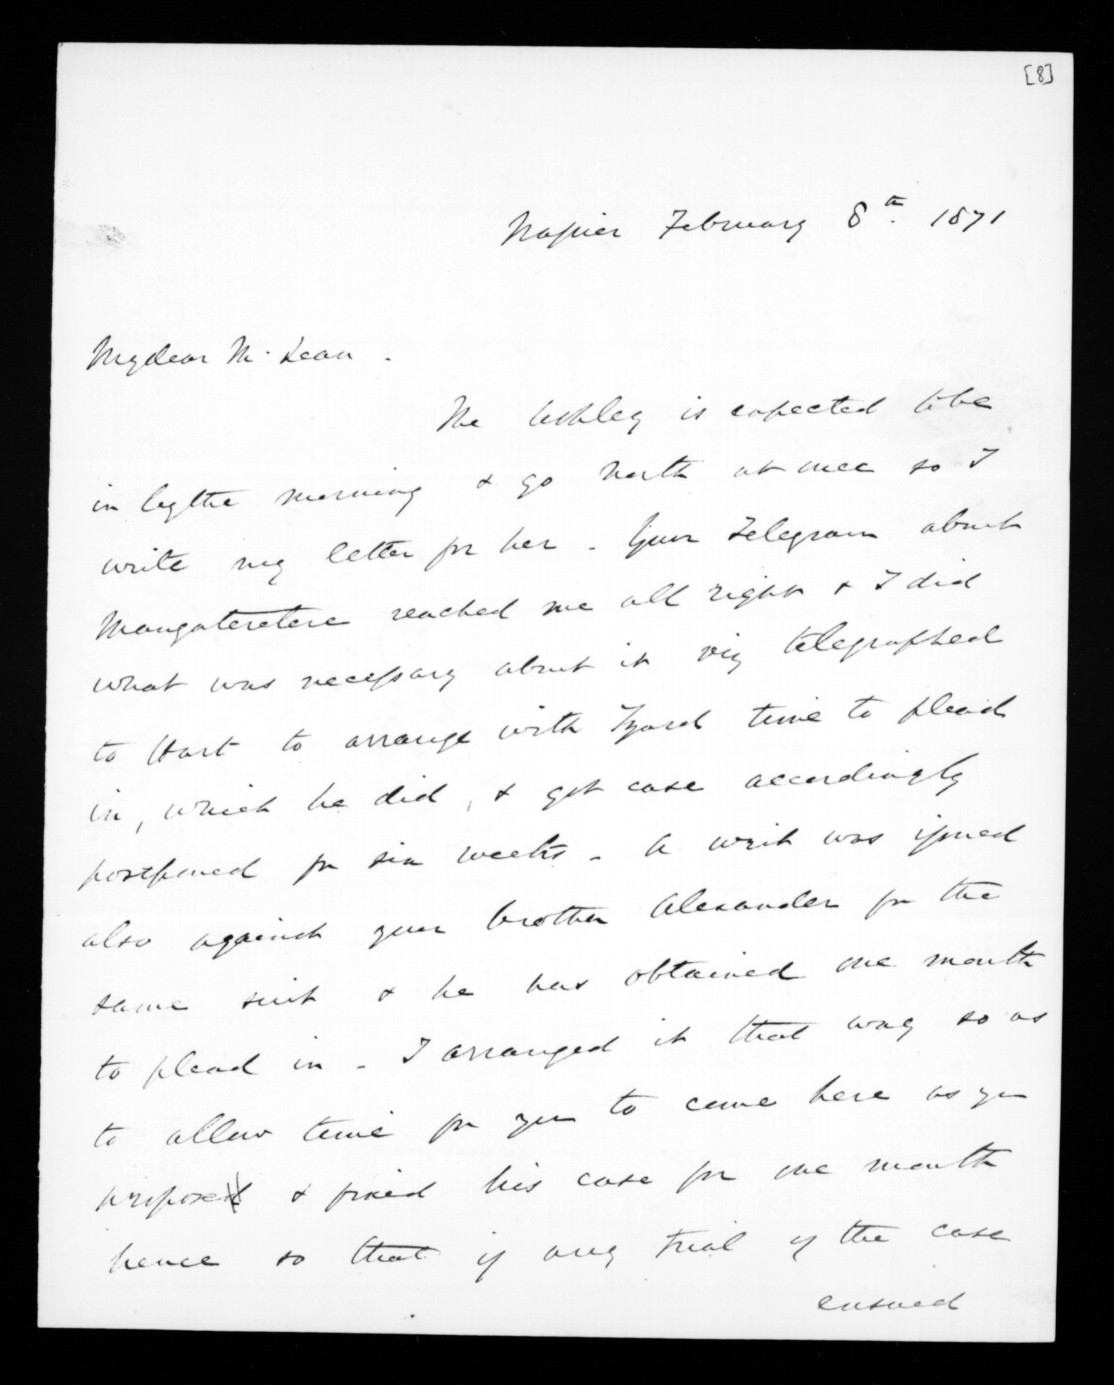 [8]
Napier February 8th. 1871
My dear McLean.
The Ashley is expected to be
in by the morning & go North at once so I
write my letter for her. Your Telegram about
Mangateretere reached me all right & I did
what was necessary about it viz telegraphed
to Hart to arrange with Izard time to plead
in, which he did, & got case accordingly
postponed for six weeks. A writ was issued
also against your brother Alexander for the
same suit & he has obtained one month
to plead in. I arranged it that way so as
to allow time for you to come here as you
propose & fixed his case for one month
hence so that if any trial of the case
ensued